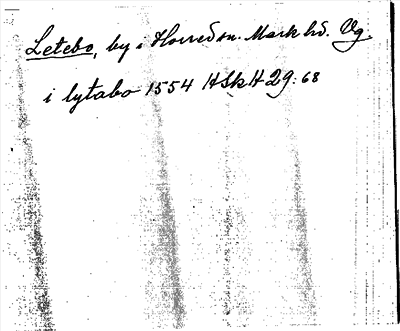 Letebo, by i Horred sn. Mark hd. Vg.
i lytabo 1554 HSkH 29:68